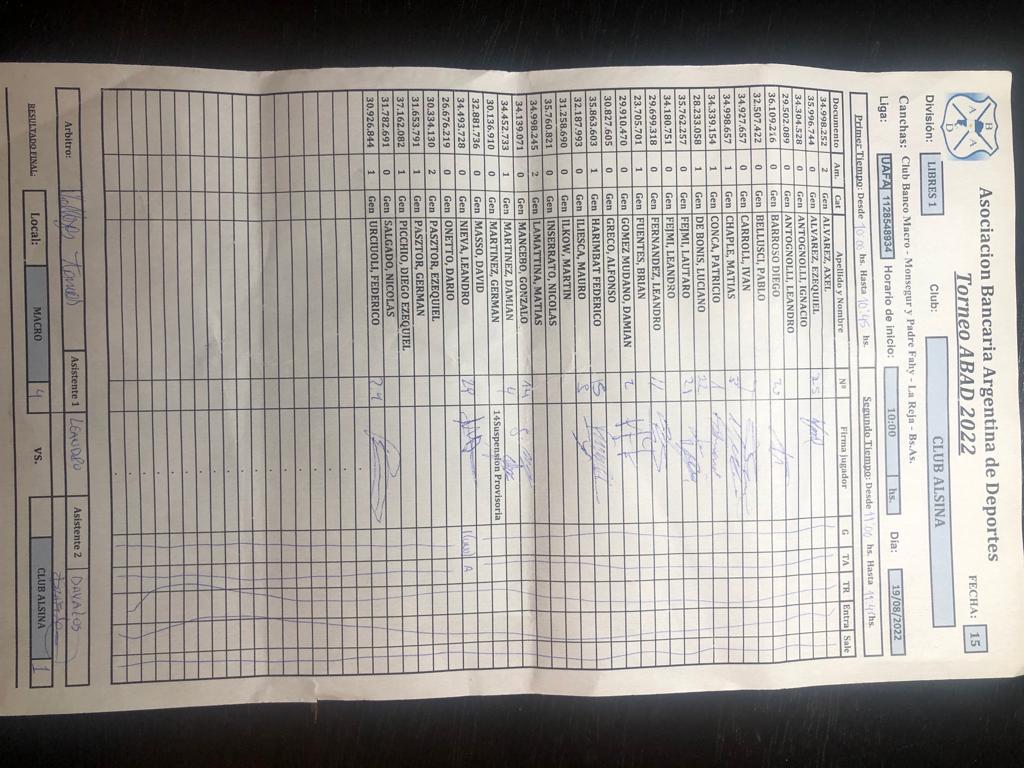 B
A A
D
Asociacion Bancaria Argentina de Deportes
Torneo ABAD 2022
FECHA: 15
División: LIBRES 1 Club: CLUB ALSINA
Canchas: Club Banco Macro - Monsegur y Padre Fahy - La Reja - Bs.As.
Liga: UAFA 1128548934 Horario de inicio: 10:00 hs. Día: 19/08/2022
Primer Tiempo: Desde 10:00 hs. Hasta 10:45 hs. Segundo Tiempo: Desde 11:00 hs. Hasta hs.
Documento Am. Cat Apellido y Nombre Nº Firma jugador G TA TR Entra Sale
34.998.252 2 Gen ALVAREZ, AXEL
35.996.744 0 Gen ALVAREZ, EZEQUIEL 25
34.304.528 0 Gen ANTOGNOLLI, IGNACIO
29.502.089 0 Gen ANTOGNOLLI, LEANDRO
36.109.216 0 Gen BARROSO DIEGO 20
32.507.422 0 Gen BELLUSCI, PABLO
34.927.657 0 Gen CARROLL, IVAN
34.998.657 1 Gen CHAPLE, MATIAS
34.339.154 1 Gen CONCA, PATRICIO 1
28.233.058 1 Gen DE BONIS, LUCIANO 22
35.762.257 0 Gen FEJMI, LAUTARO 21
34.180.751 0 Gen FEJMI, LEANDRO
29.699.318 0 Gen FERNANDEZ, LEANDRO 11
23.705.701 1 Gen FUENTES, BRIAN
29.910.470 0 Gen GOMEZ MUDANO, DAMIAN 2
30.827.605 0 Gen GRECO, ALFONSO
35.863.603 1 Gen HARIMBAT FEDERICO 15
32.187.993 0 Gen ILIESCA, MAURO
31.258.690 0 Gen ILKOW, MARTIN
35.760.821 0 Gen INSERRATO, NICOLAS
34.998.245 2 Gen LAMATTINA, MATIAS
34.139.071 0 Gen MANCEBO, GONZALO 14
34.452.733 1 Gen MARTINEZ, DAMIAN 4
30.136.910 0 Gen MARTINEZ, GERMAN 14Suspension Provisoria
32.881.736 0 Gen MASSO, DAVID
34.493.728 0 Gen NIEVA, LEANDRO 1(uno) A
26.676.219 0 Gen ONETTO, DARIO
30.334.130 2 Gen PASZTOR, EZEQUIEL
31.653.791 1 Gen PASZTOR, GERMAN
37.162.082 1 Gen PICCHIO, DIEGO EZEQUIEL
31.782.691 0 Gen SALGADO, NICOLAS
30.926.844 1 Gen URCIUOLI, FEDERICO 24
Arbitro: Tomas Asistente 1 LEANDRO Asistente 2 DAVALOS
RESULTADO FINAL: Local: MACRO 4 VS. CLUB ALSINA 1